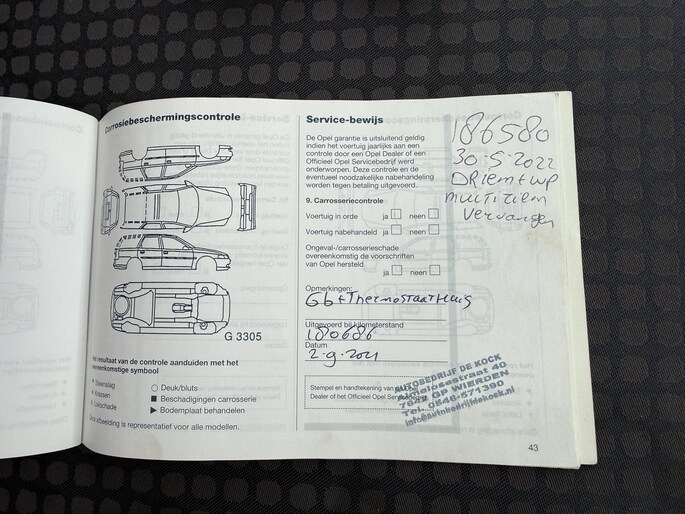 Corrosiebeschermingscontrole
G 3305
Het resultaat van de controle aanduiden met het
overeenkomstige symbool
* Steenslag
+ Krassen
Lakschade
○ Deuk/bluts
■ Beschadigingen carrosserie
▶ Bodemplaat behandelen
Deze afbeelding is representatief voor alle modellen.
Service-bewijs
De Opel garantie is uitsluitend geldig
indien het voertuig jaarlijks aan een
controle door een Opel Dealer of een
Officieel Opel Servicebedrijf werd
onderworpen. Deze controle en de
eventueel noodzakelijke nabehandeling
worden tegen betaling uitgevoerd.
9. Carrosseriecontrole
Voertuig in orde ja neen
Voertuig nabehandeld ja neen
Ongeval-/carrosserieschade
overeenkomstig de voorschriften
van Opel hersteld
ja neen
Opmerkingen:
Gb + Thermostaathuis
Uitgevoerd bij kilometerstand
180686
Datum
2-9-2021
Stempel en handtekening van
Dealer of het Officieel Opel
AUTOBEDRIJF DE KOCK
40
7642 GP WIERDEN
Tel. 0546-571390
info@autobedrijfdekock.nl
186580
30-5-2022
DRiem + wp
multiriem
vervangen
43